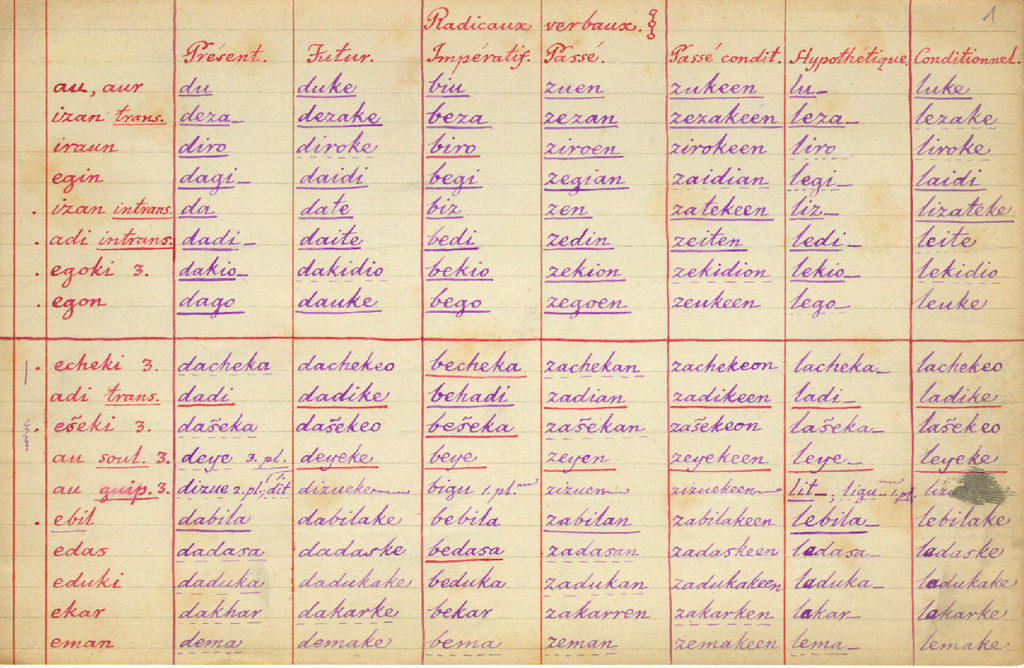 Radicaux verbaux. 1
Présent. Futur. Impératif. Passé. Passé condit. Hypothétique. Conditionnel.
au, aur du duke biu zuen zukeen lu_ luke
izan trans. deza_ dezake beza zezan zezakeen leza_ lezake
iraun diro diroke biro ziroen zirokeen liro liroke
egin dagi_ daidi begi zegian zaidian legi_ laidi
. izan intrans. da date biz zen zatekeen liz_ lizateke
. adi intrans. dadi_ daite bedi zedin zeiten ledi_ leite
. egoki 3. dakio_ dakidio bekio zekion zekidion lekio_ lekidio
. egon dago dauke bego zegoen zeukeen lego_ leuke
. echeki 3. dacheka dachekeo becheka zachekan zachekeon lacheka_ lachekeo
adi trans. dadi dadike behadi zadian zadikeen ladi_ ladike
. ešeki 3. dašeka dašekeo bešeka zašekan zašekeon lašeka_ lašekeo
au soul. 3. deye 3. pl. deyeke beye zeyen zeyekeen leye_ leyeke
au guip. 3. dizue 2. pl. dit dizueke bigu 1. pl. zizuen zizuekeen lit_; ligu_ 1. pl.
. ebil dabila dabilake bebila zabilan zabilakeen lebila_ lebilake
edas dadasa dadaske bedasa zadasan zadaskeen ladasa_ ladaske
eduki daduka dadukake beduka zadukan zadukakeen laduka_ ladukake
ekar dakhar dakarke bekar zakarren zakarken lakar_ lakarke
eman dema demake bema zeman zemakeen lema_ lemake